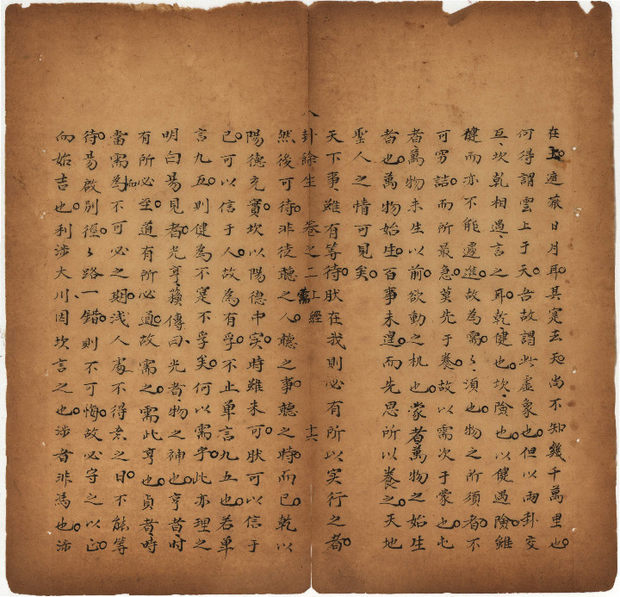 在玉庭蔽日月耳其寔去天尚不知幾千萬里也
何得謂雲上于天吾故謂此虛象也但以兩卦交
互坎乾相遇言之耳乾健也坎險也以健遇險雖
健而亦不能遽進故為需需須也物之所須者不
可窮詰而所最急莫先于養故以需次于蒙也屯
者萬物未生以前欲動之机也蒙者萬物之始生
者也萬物始生百事未遑而先思所以養之天地
聖人之情可見矣
天下事雖有等待狀在我則必有所以实行之者
八卦餘生 卷之二 上經 十六
然後可待非徒聽之人聽之事聽之時而已乾以
陽德充實坎以陽德中实時雖未可狀可以信于
己可以信于人故為有孚不止單言九五也若單
言九五則健為不寔不孚矣何以需乎此亦理之
明白易見者光亨籟傳曰光者物之神也亨者時
有所必至道有所必通故需之需此亨也貞者時
當需為不可必之期浅人每不得志之日不能等
待易啟別徑徑路一錯則不可悔故必守之以正
向始吉也利涉大川因坎言之也涉者非馮也涉